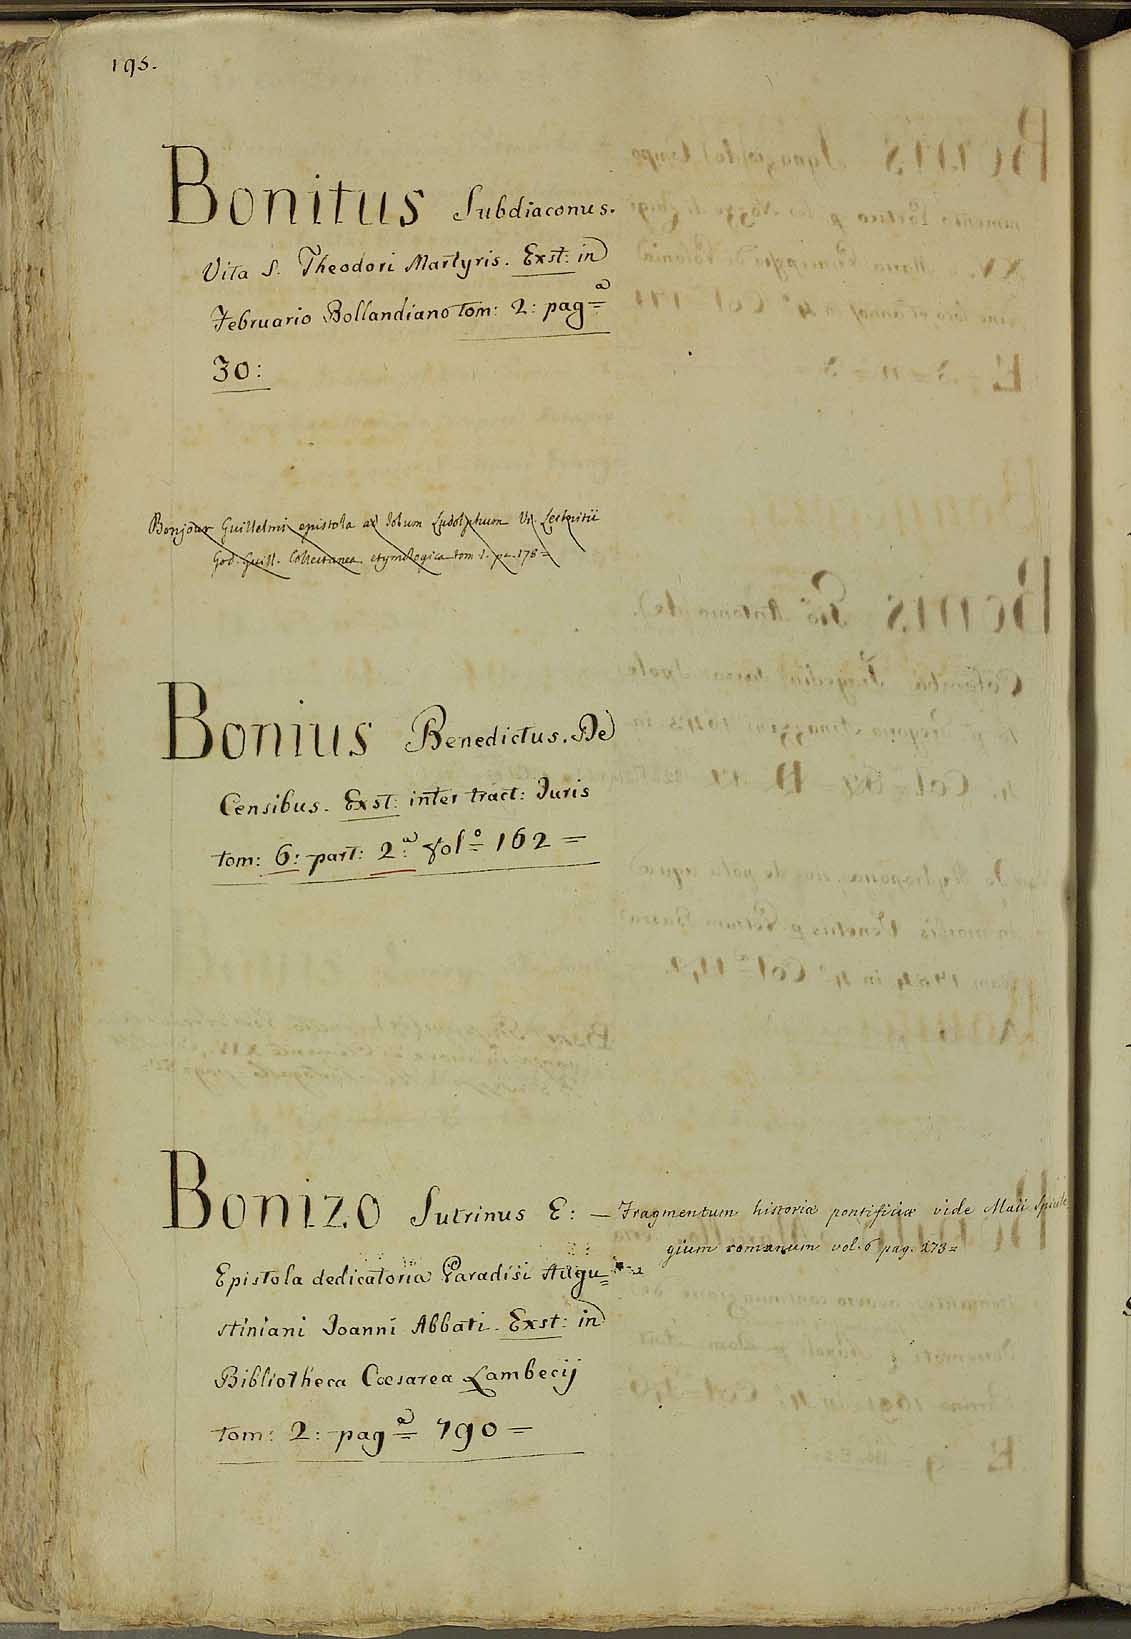 195.
Bonitus Subdiaconus.
Vita S. Theodori Martyris. Exst: in
Februario Bollandiano tom: 2: pagª
30:
Bonjour Guillelmi epistola ad Iobum Ludolphum V.
God. Guill. Collectanea etymologica tom 1. pa. 178 =
Bonius Benedictus. De
Censibus. Exst: inter tract: Iuris
tom: 6: part: 2:ª fol° 162 =
Bonizo Sutrinus E: — Fragmentum historiæ pontificiæ vide Maii Spicile
gium romanum vol. 6 pag. 273 =
Epistola dedicatoria Paradisi Augu=
stiniani Joanni Abbati. Exst: in
Bibliotheca Cæsarea Lambecij
tom: 2: pagª 790 =